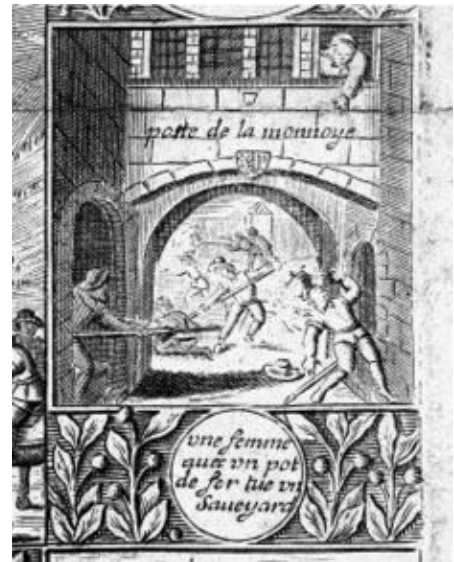 porte de la monnoye
vne femme
quec vn pot
de fer tue vn
Saueyard